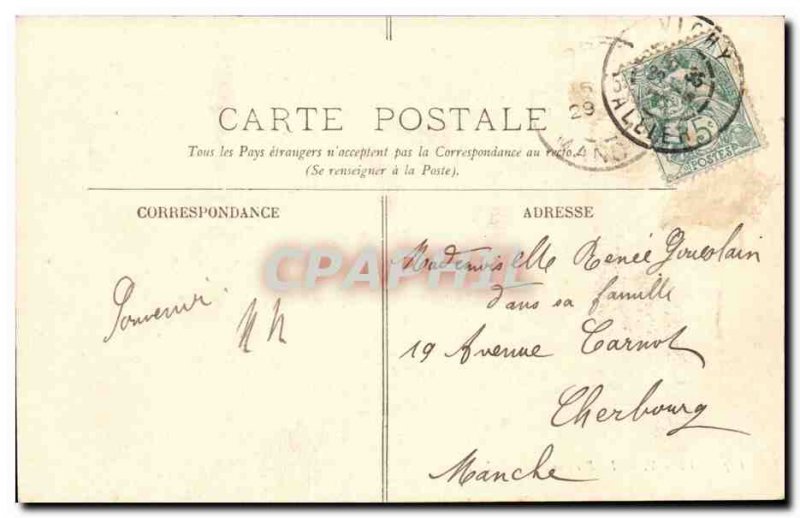 CARTE POSTALE
Tous les Pays étrangers n'acceptent pas la Correspondance au recto.
(Se renseigner à la Poste).
CORRESPONDANCE
ADRESSE
VICHY
ALLIER
5c
POSTES
29
CPAPHIL
Souvenir.
Mademoiselle Renée
dans sa famille
19 Avenue Carnot
Cherbourg
Manche